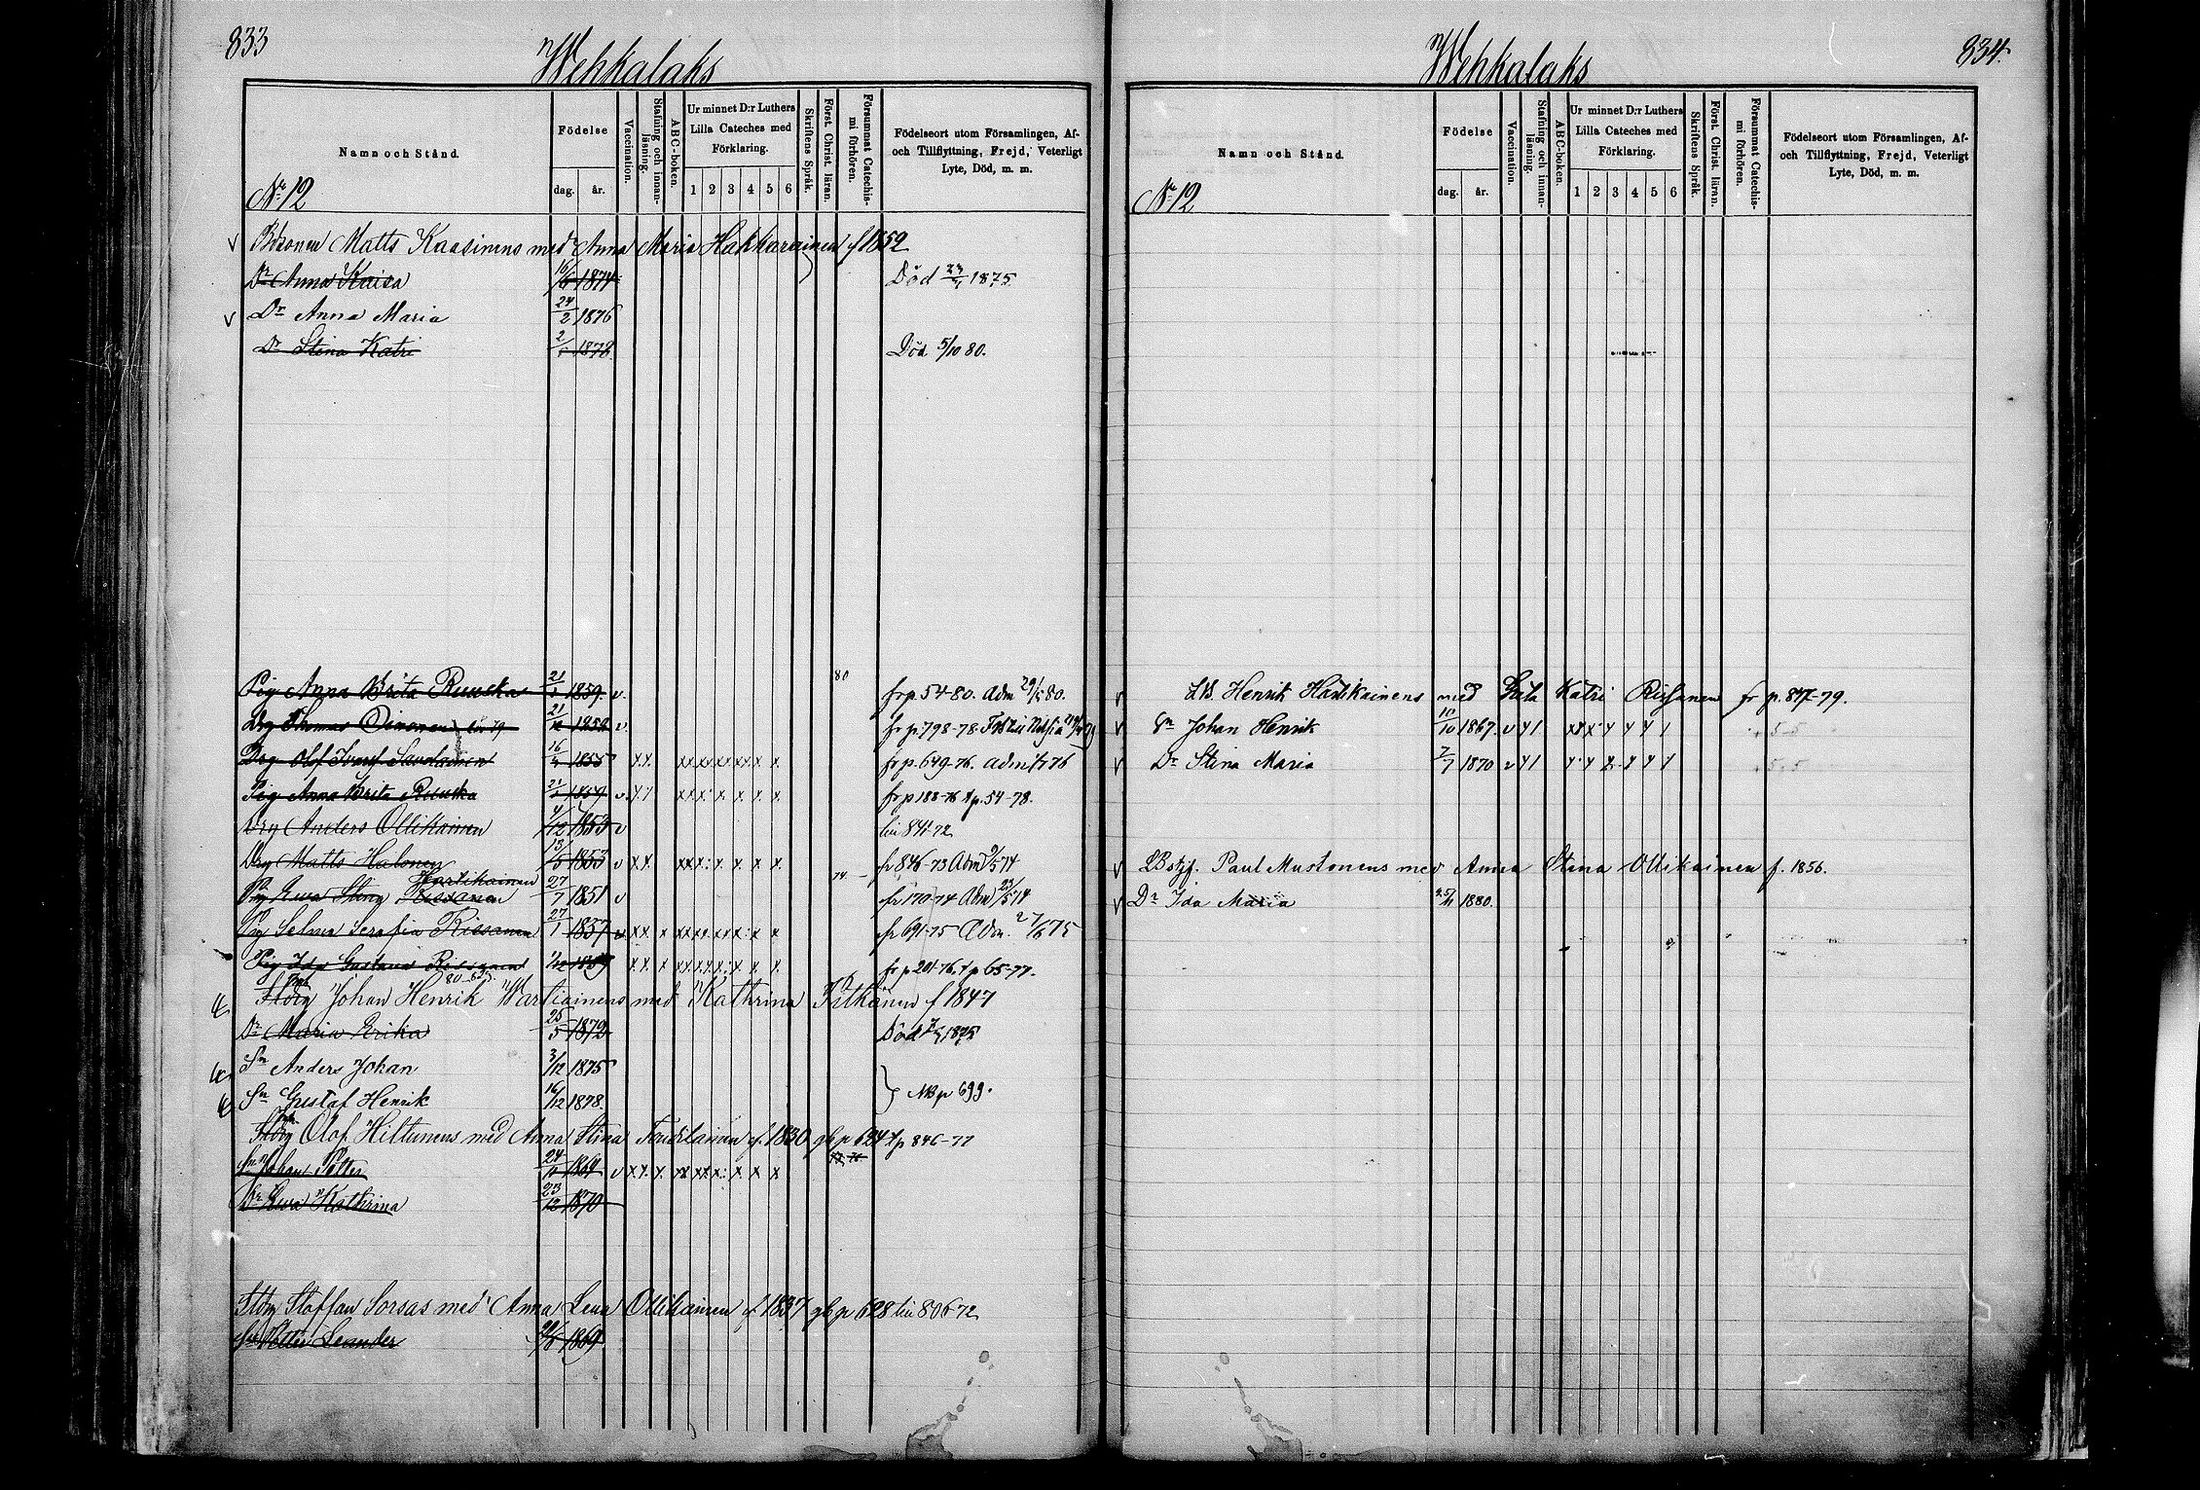 833
Wehkalaks
Namn och Stånd.
Födelse
dag. år.
Vaccination.
Stafning och innan-läsning.
ABC-boken.
Ur minnet D:r Luthers Lilla Cateches med Förklaring.
1 2 3 4 5 6
Skriftens Språk.
Först. Christ. läran.
Försummat Catechis-mi förhören.
Födelseort utom Församlingen, Af- och Tillflyttning, Frejd, Veterligt Lyte, Död, m. m.
No 12
Matts Kaasinens med Anna Maria Hakkarainen f 1852
Dr Anna Kaisa 16/6 1874 Död 1875
Dr Anna Maria 24/2 1876
Dr Stina Katri 1878 Död 5/10 80.
80
Pig Anna Brita Ruuska 21 1859 v fr p. 54-80. Adm 80.
Drg Thomas Oinonen 21 v fr p. 798-78.
Drg Olof 16 1855 x x x x x x x x fr p. 649-76. adm 76
Pig Anna Brita Ruuska 21 1859 v x x x x x x x x fr p 188-76 t p. 54-78.
Drg Anders Ollikainen 4/12 1853 v 841-72
Drg Matts Halonen 13/5 1853 v x x x x x x x x fr 846-73 Adm 74
Hartikainen
Pig Ewa Stina Rissanen 27/7 1851 v 74 fr 170-74 Adm 74
Pig Selma Serafia Rissanen 27/1 1857 v x x x x x x x x x fr 691-75 Adm. 75
Pig Ida Gustava Rissanen x x x x x x x x x fr p 201-76. t p 65-77.
80-635
Johan Henrik Wartiainens med Kathrina Pitkänen f 1847
Dr Maria Erika 25/5 1872 Död 1875
Sn Anders Johan 3/12 1875
Sn Gustaf Henrik 16/12 1878. } NB p 699.
Olof Hiltunens med Anna Stina f. 1830 gb p 624 t p 846-77
Sn Johan Petter 24 1869 v x x x x x x x x x
Dr Ewa Kathrina 23/12 1870
Staffan Sorsas med Anna Lena Ollikainen f 1837 gb p 628 806-72
Sn Petter Leander 1869
834.
Wehkalaks
Namn och Stånd.
Födelse
dag. år.
Vaccination.
Stafning och innan-läsning.
ABC-boken.
Ur minnet D:r Luthers Lilla Cateches med Förklaring.
1 2 3 4 5 6
Skriftens Språk.
Först. Christ. läran.
Försummat Catechis-mi förhören.
Födelseort utom Församlingen, Af- och Tillflyttning, Frejd, Veterligt Lyte, Död, m. m.
No 12
Henrik Hartikainens med Katri fr p. 847-79.
Sn Johan Henrik 10/10 1867. v
Dr Stina Maria 7/7 1870 v
LBstjf. Paul Mustonens med Anna Stina Ollikainen f. 1856.
Dr Ida Maria 1880.